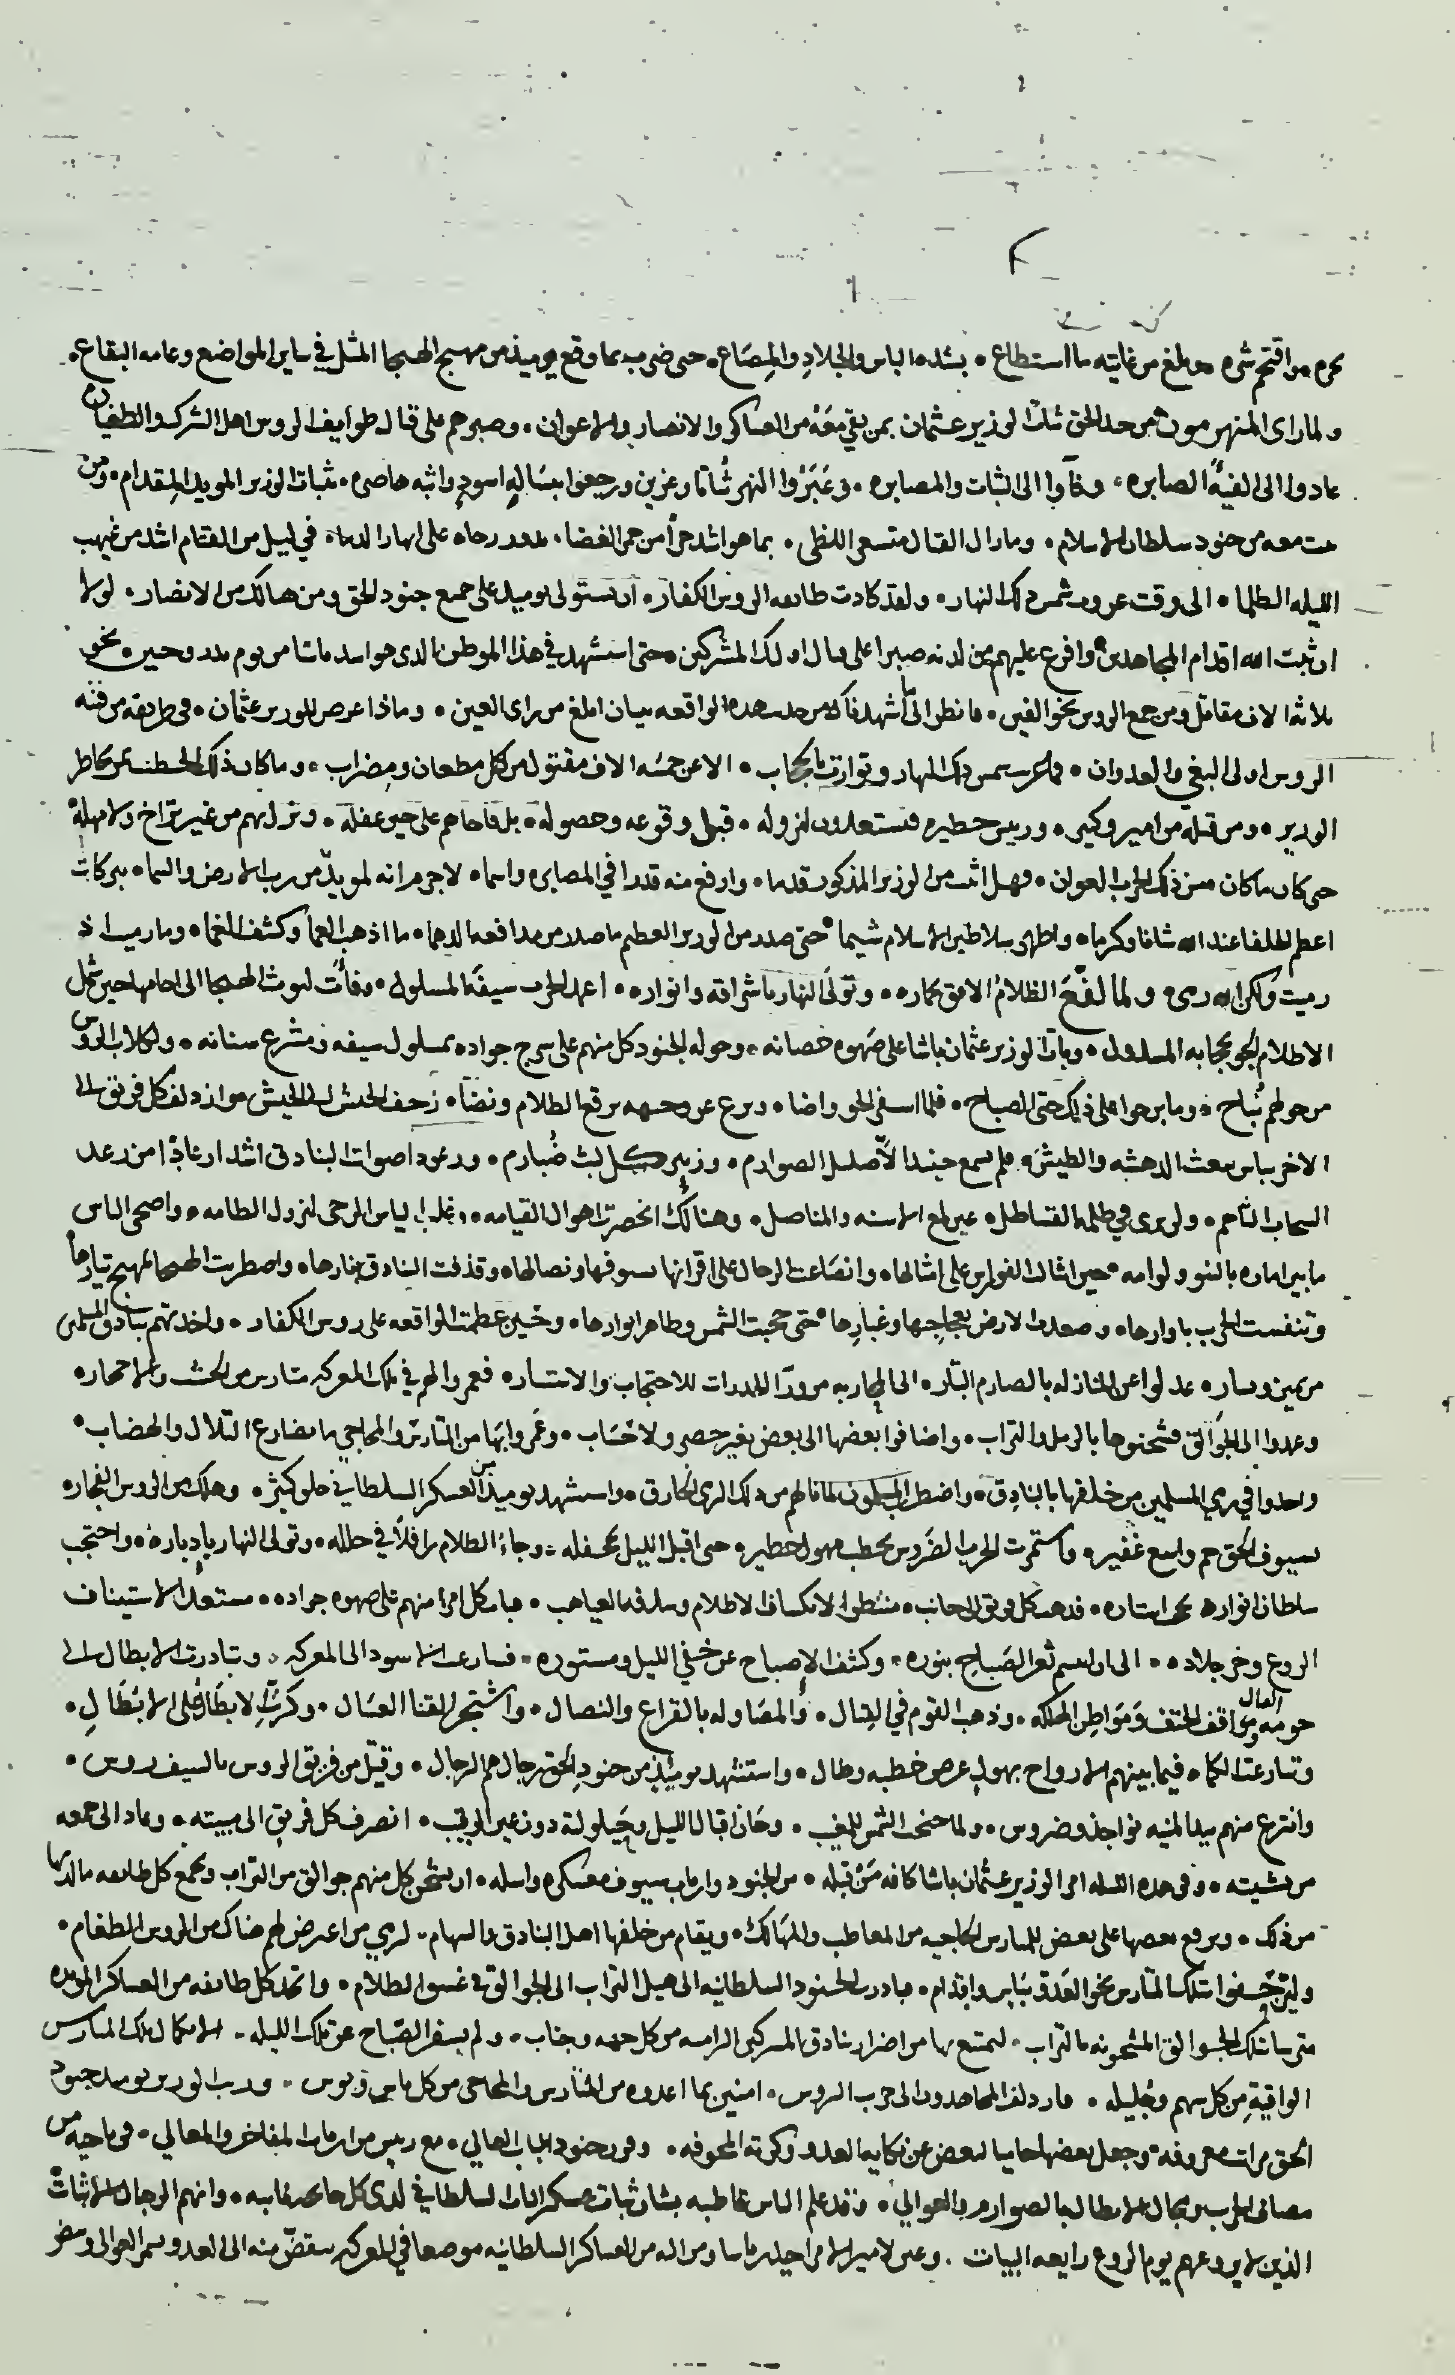 من اقتحم شره وبلغ من غايته ما استطاع • بشده الباس والجلاد والمصاع • حتى ضرب بما وقع يوميذ من مهيج الهيجا المثل في ساير المواضع وعامه البقاع •
ولما راى المنهزمون من جند الحق ثبات الوزير عثمان بمن بقي معه من العساكر والانصار والاعوان • وصبرهم على قتال طوايف الروس اهل الشرك والطغيان
عادوا الى الفية الصابره • وفآوا الى الثبات والمصابره • وعبروا النهر ثباتا وعزين ورجعوا ببساله اسود واثبه هاصره • ثبات الوزير المويد المقدام • ومن
معه من جنود سلطان الاسلام • وما زال القتال متسعر اللظى • بما هو اشد حرا من جمر الغضا • تدور رحاه على انهار الدما • في ليل من القتام اشد من غيهب
الليله الظلما • الى وقت غروب شمس ذلك النهار • ولقد كادت طايفه الروس الكفار • ان تستولي يوميذ على جميع جنود الحق ومن هنالك من الانصار • لولا
ان ثبت الله اقدام المجاهدين وافرغ عليهم من لدنه صبرا على قتال اولئك المشركين • حتى استشهد في هذا الموطن الذي هو اشد باسا من يوم بدر وحنين • نحو
ثلاثه الاف مقاتل ومن جمع الروس نحو الفين • فانظر الى ما اشهدناك من حديث هذه الواقعه ببيان ابلغ من راى العين • وماذا عرض للوزير عثمان • في طريقه من فتنه
الروس اولى البغي والعدوان • فلم تغرب شمس ذلك النهار وتوارت بالحجاب • الا عن خمسه الاف مقتول من كل مطعان ومضراب • وما كان ذلك الخطب يمر بخاطر
الوزير • ومن قبله من امير وكبير • ورييس خطير • فيستعدون لنزوله • قبل وقوعه وحصوله • بل فاجاهم على حين غفله • ونزل بهم من غير تراخ ولا مهله
حتى كان ما كان من ذلك الحرب العوان • فهل اثبت من الوزير المذكور قدما • وارفع منه قدرا في المصابره واسما • لا جرم انه لمويد من رب الارض والسما • ببركات
اعظم الخلفا عند الله شانا وكرما • واظهر سلاطين الاسلام شيما • حتى صدر من الوزير العظيم ما صدر من مدافعه الدهما • ما اذهب الغما وكشف الغما • وما رميت اذ
رميت ولكن الله رمى • ولما لفع الظلام الافق بخماره • وتولى النهار باشراقه وانواره • اغمد الحرب سيفه المسلول • وفآت ليوث الهيجا الى اجامها حين شمل
الاظلام الجو بحجابه المسدول • وبات الوزير عثمان باشا على صهوه حصانه • وحوله الجنود كل منهم على سرج جواده بمسلول سيفه ومشرع سنانه • ولكلاب الروس
من حولهم نباح • وما برحوا على ذلك حتى الصباح • فلما اسفر الجو واضا • ونزع عن وجهه برقع الظلام ونضا • زحف الجيش الى الجيش • وازدلف كل فريق الى
الاخر بباس يبعث الدهشه والطيش • فلم يسمع حينيذ الا صليل الصوارم • وزيير كل ليث ضبارم • ورعود اصوات البنادق اشد ارعادا من رعد
السحاب التاجم • ولن يرى في ظلمه القساطل • غير لمع الاسنه والمناصل • وهنالك انحصرت اهوال القيامه • وغلب الياس المرجى لنزول الطامه • واضحى الناس
ما بين اماره بالسو ولوامه • حين انثالت الفوارس على امثالها • وانصاعت الرجال على اقرانها بسيوفها ونصالها • وقذفت البنادق بنارها • واضطربت الهيجا بمهيج تيارها
وتنفست الحرب باوارها • وصعدت الارض بعجاجها وغبارها • حتى حجبت الشمس وظاهر انوارها • وحين عظمت الواقعه على روس الكفار • واخذتهم بنادق المسلمين
من يمين ويسار • عدلوا عن المنازله بالصارم البتار • الى المحاربه من ورآ الجدرات للاحتجاب والاستتار • فعمروا لهم في تلك المعركه متارس من الخشب والاحجار •
وعمدوا الى الجوالق فشحنوها بالرمل والتراب • واضافوا بعضها الى بعض بغير حصر ولا حساب • وعمروا بها من المتارس والمحاجي ما يضارع التلال والهضاب •
واخذوا في رمي المسلمين من خلفها بالبنادق • واضطرب المسلمون لما نالهم من ذلك الرمي الخارق • واستشهد يوميذ من العسكر السلطاني خلق كثير • وهلك من الروس الفجار •
بسيوف الحق جم واسع غفير • واستمرت الحرب الضروس بخطب مهول خطير • حتى اقبل الليل بجحفله • وجاء الظلام رافلا في حلله • وتولى النهار بادباره • واحتجب
سلطان انواره تحت استاره • فذهب كل فريق الى جانب • منتظرا لانكساف الاظلام وسدفه الغياهب • فبات كل امرا منهم على صهوه جواده • مستعدا لاستيناف
الروع وخر جلاده • الى ان ابتسم ثغر الصباح بنوره • وكشف الاصباح عن خفي الليل ومستوره • فسارعت الاسود الى المعركه • وتبادرت الابطال الى
حومه القتال ومواقف الحتف ومواطن الهلكه • وذهب القوم في القتال • والمصاوله بالقراع والنصال • واشتجر القنا العسال • وكرت الابطال على الابطال •
وتسارعت الكماه فيما بينهم الارواح بهول عرض خطبه وطال • واستشهد يوميذ من جنود الحق رجال هم الرجال • وقتل من فريق الروس بالسيف روس •
وانتزع منهم بيد المنيه نواجذ وضروس • ولما جنحت الشمس للمغيب • وحان اقبال الليل وحيلولته دون عين الرقيب • انصرف كل فريق الى مبيته • وعاد الى جمعه
من تشتيته • وفي هذه الليله امر الوزير عثمان باشا كافه من قبله • من الجنود وارباب سيوف معسكره واسله • ان يشحن كل منهم جوالق من التراب وتجمع كل طايفه ما لديها
من ذلك • ويرفع بعضها على بعض للمتارس الحاجبه من المعاطب والمهالك • ويقام من خلفها اهل البنادق والسهام • لرمي من اعترض لهم هناك من الروس الطغام •
وليزحفوا بتلك المتارس نحو العدو بباس واقدام • فبادرت الجنود السلطانيه الى هيل التراب الى الجوالق في غسق الظلام • واتخذ كل طايفه من العساكر المويده
متراسا بتلك الجوالق المشحونه بالتراب • لتمتنع بها من اضرار بنادق المشركين الراميه من كل جهه وجناب • ولم يسفر الصباح عن تلك الليله • الا بكمال تلك المتارس
الواقيه من كل سهم وجليله • فازدلف المجاهدون الى حرب الروس • امنين بما اعدوه من المتارس والمحاجي من كل باس وبوس • ورتب الوزير يوميذ جنود
الحق مراتب معروفه • وجعل بعضها حاميا لبعض عن نكايه العدو وكرته المخوفه • وفرق جنود الباب العالي • مع رييس من ارباب المفاخر والمعالي • في ناحيه من
مصاف الحرب ومجال الابطال بالصوارم والعوالي • وقد علم الناس قاطبه بشان ثبات عسكر الباب السلطاني لدى كل حاضره وغايبه • وانهم الرجال الاثبات
الذين لا يروعهم يوم الروع رايعه البيات • وعين لامير الامرا حيدر باشا ومن اليه من العساكر السلطانيه موضعا في المعركه ينقض منه الى العدو بسمر العوالي